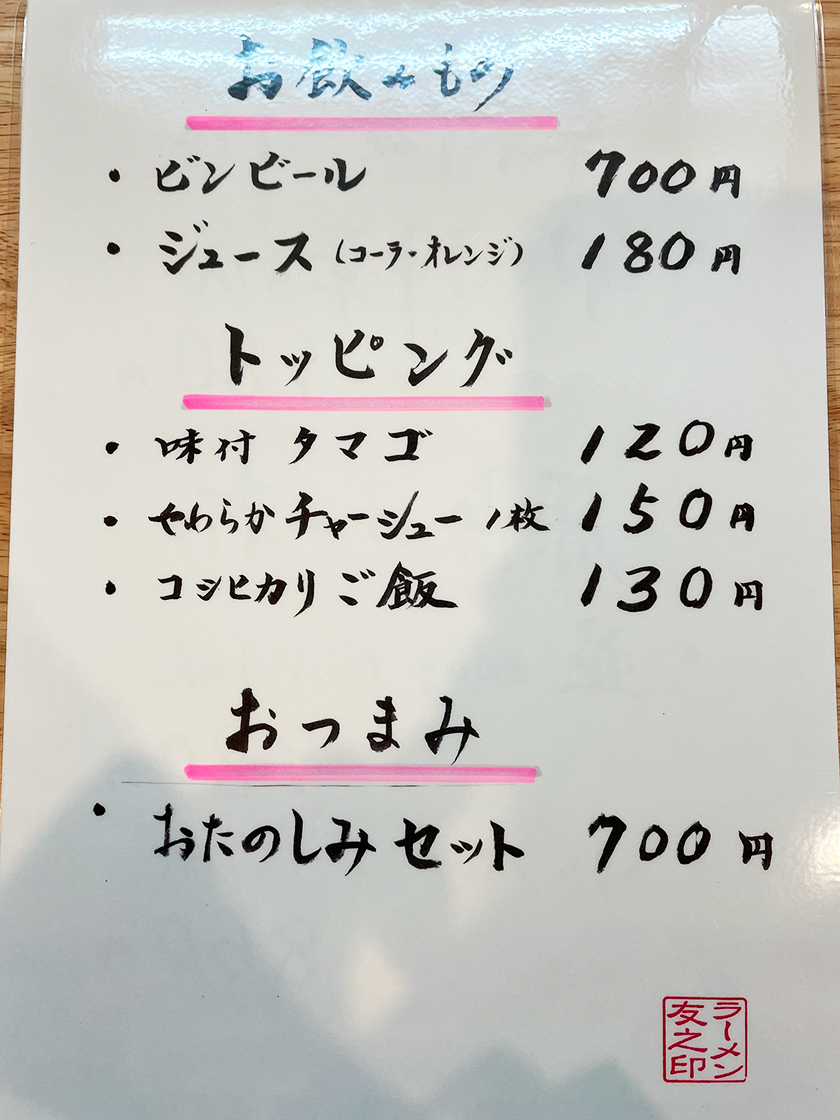 お飲みもの
・ビンビール 700円
・ジュース（コーラ・オレンジ） 180円
トッピング
・味付タマゴ 120円
・やわらかチャーシュー1枚 150円
・コシヒカリご飯 130円
おつまみ
・おたのしみセット 700円
ラーメン
友之印